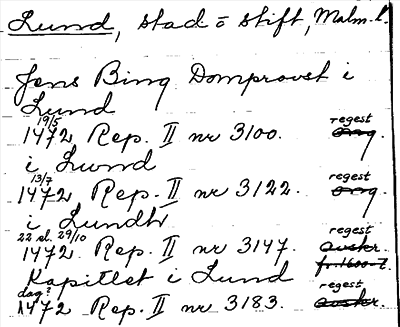 Lund, stad o stift, Malm. l.
Jens Bing Domprovst i
Lund
19/5
1472 Rep. II nr 3100. regest
i Lwnd
13/7
1472 Rep. II nr 3122. regest
i Lundh
22 el. 29/10
1472 Rep. II nr 3147. regest
Kapitlet i Lund
dag?
1472 Rep. II nr 3183. regest